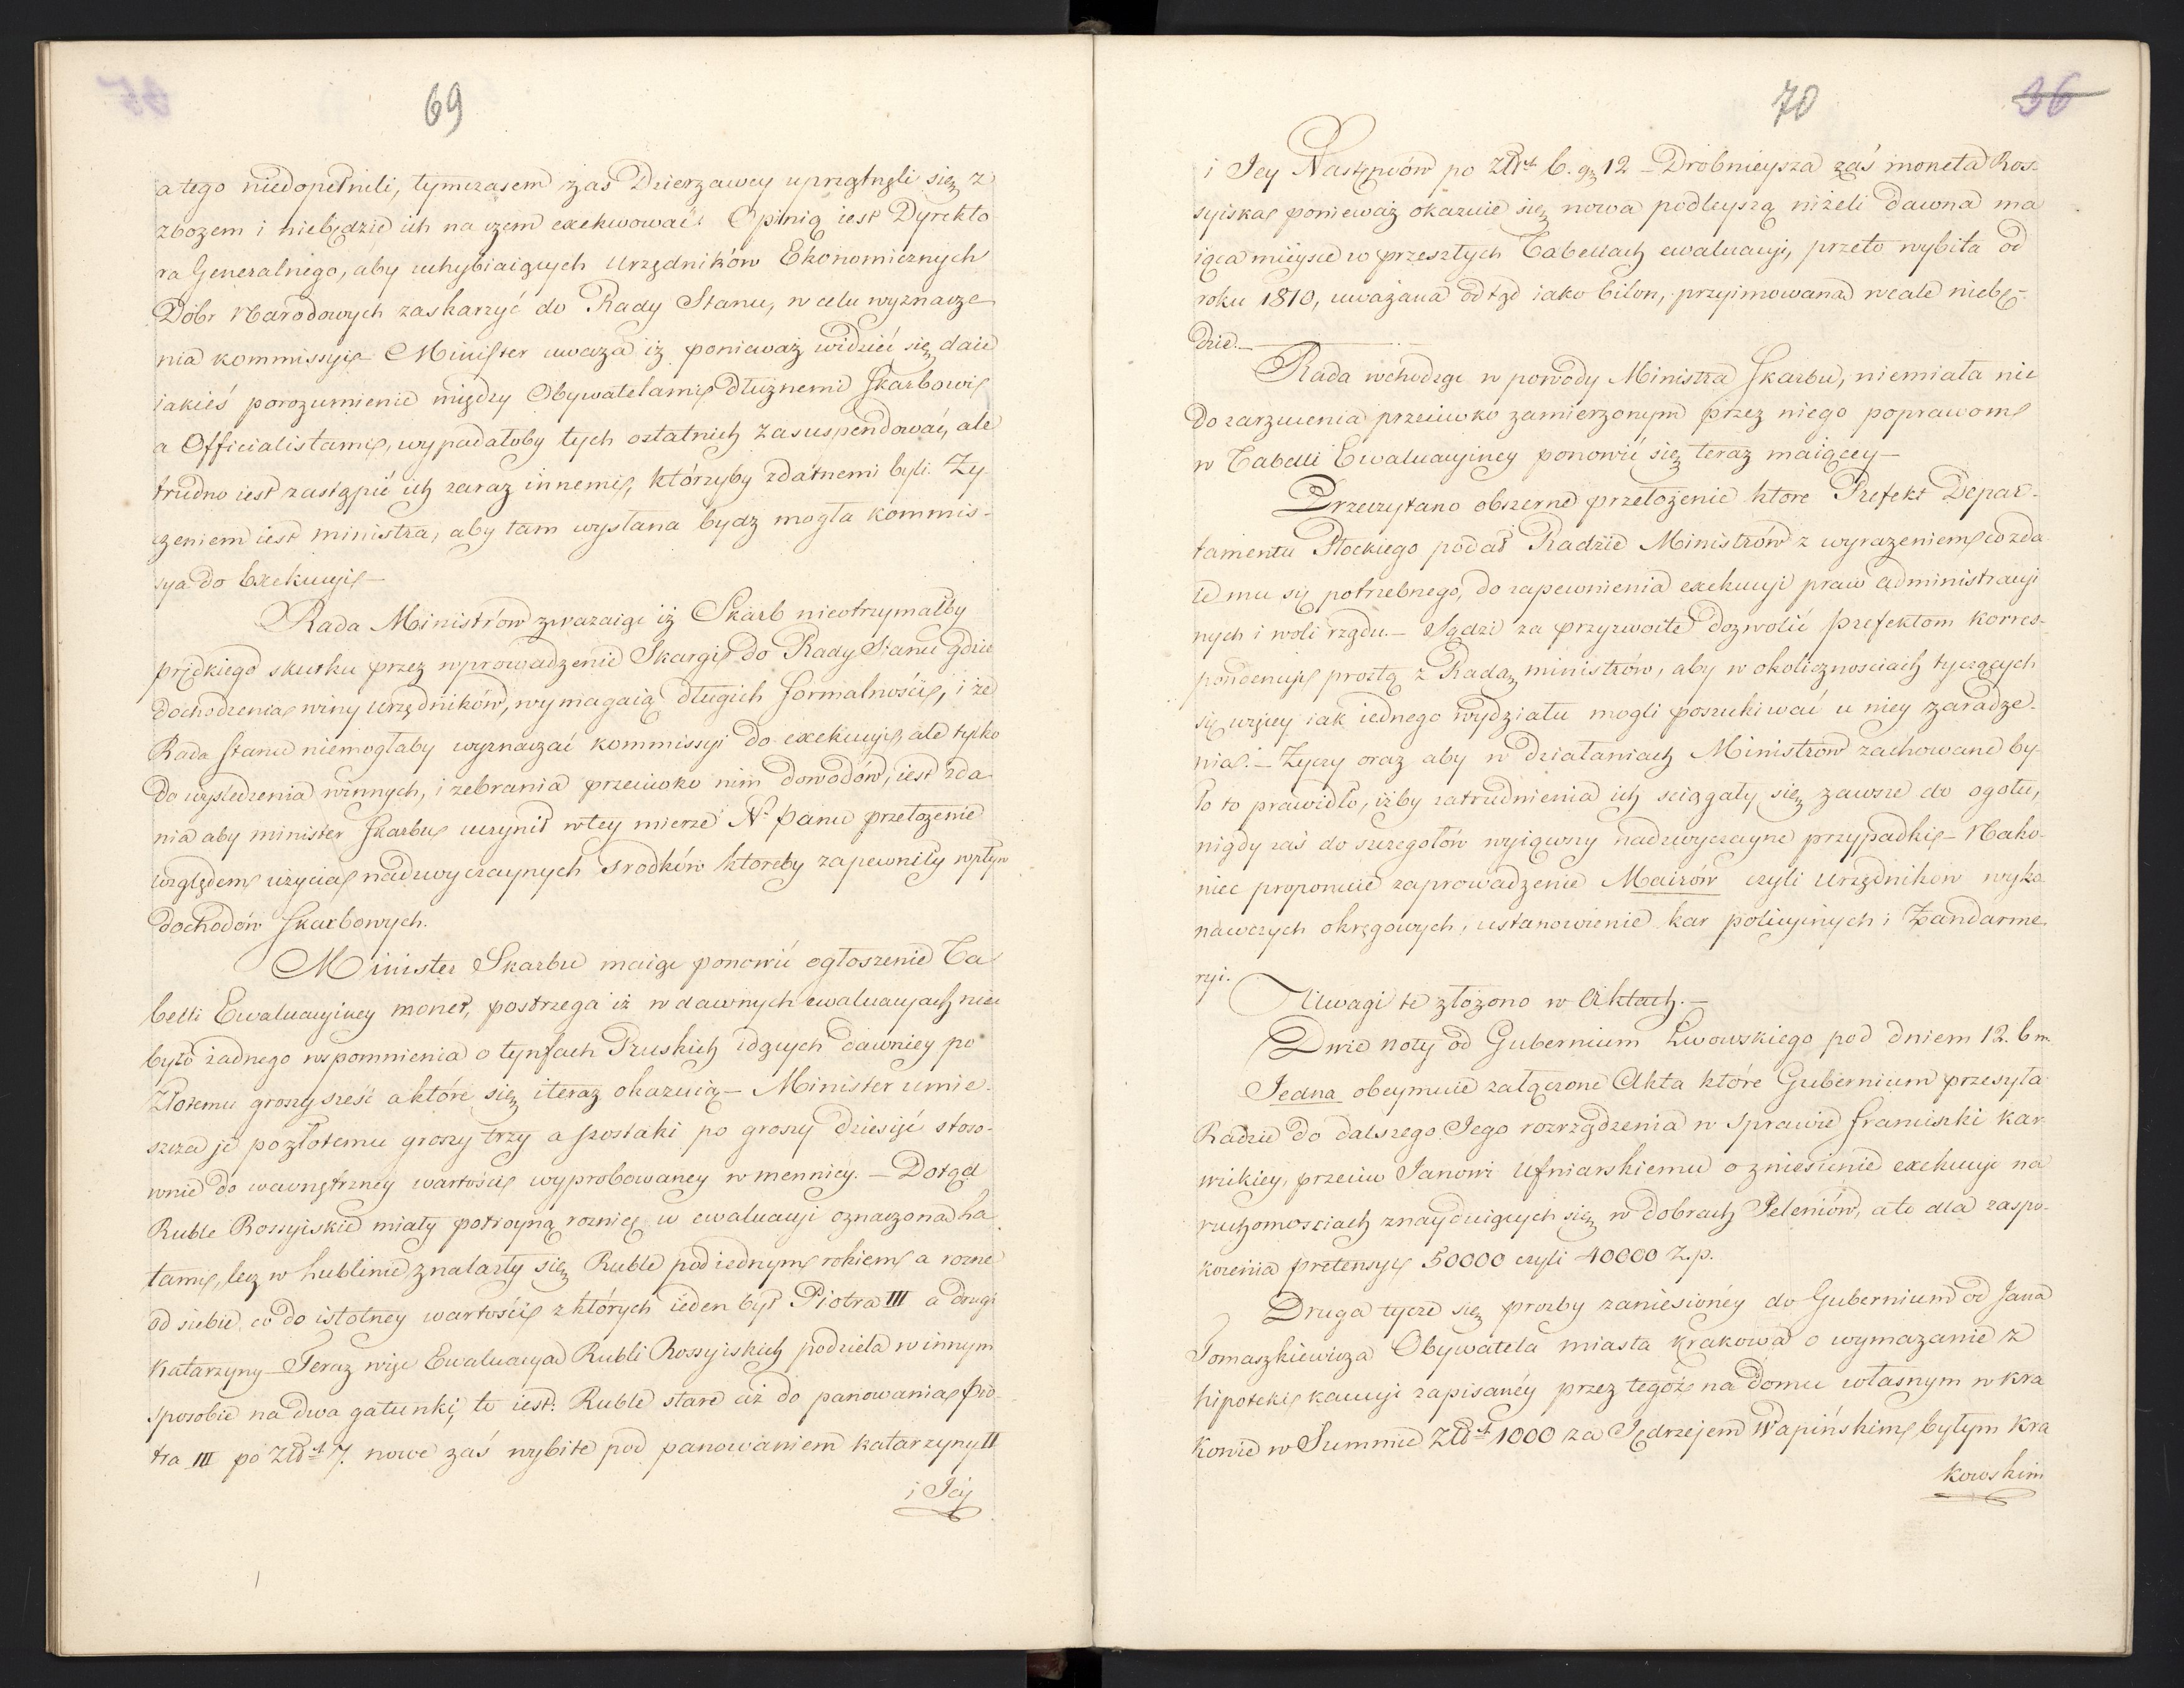 69
a tego niedopełnili, tymczasem zas Dzierzawcy uprzątnęli się z
zbozem i niebędzie ich na czem exekwować. Opinią iest Dyrekto
ra Generalnego, aby uchybiaiących Urzędników Ekonomicznych
Dóbr Narodowych zaskarzyć do Rady Stanu, w celu wyznacze
nia kommissyi – Minister uwaza iz ponieważ widzieć się daie
iakieś porozumienie między Obywatelami dłużnemi Skarbowi
a Officialistami, wypadałoby tych ostatnich zasuspendować, ale
trudno iest zastąpić ich zaraz innemi, którzyby zdatnemi byli. Zy
czeniem iest ministra, aby tam wysłana bydz mogła kommis-
sya do Exekucyi –
Rada Ministrów zwazaiąc iż Skarb nieotrzymałby
prędkiego skutku przez wprowadzenie Skargi do Rady Stanu gdzie
dochodzenia winy urzędników, wymagaią długich formalności, i ze
Rada Stanu niemogłaby wyznaczać kommissyi do exekucyi, ale tylko
do wyśledzenia winnych, i zebrania przeciwko nim dowodów, iest zda
nia aby minister Skarbu uczynił w tey mierze N. Panu przełozenie
względem uzycia nadzwyczaynych srodków ktoreby zapewniły wpływ
dochodów Skarbowych.
Minister Skarbu maiąc ponowić ogłoszenie Ta
belli Ewaluacyiney monet, postrzega iż w dawnych ewaluacyach nie
było zadnego wspomnienia o tynfach Pruskich idących dawniey po
Złotemu groszy sześć a które się i teraz okazuią – Minister umie-
szcza je po złotemu groszy trzy a szostaki po groszy dziesięć stoso-
wnie do wewnętrzney wartości wyprobowaney w mennicy. – Dotąd
Ruble Rossyiskie miały potroyną roznicę w ewaluacyi oznaczoną la
tami, lecz w Lublinie znalazły się Ruble pod iednym rokiem a rozne
od siebie co do istotney wartości z których ieden był Piotra III a drugi
Katarzyny – Teraz więc Ewaluacya Rubli Rossyiskich podziela w innym
sposobie na dwa gatunki, to iest: Ruble stare aż do panowania Pio-
tra III po Złt 7. nowe zaś wybite pod panowaniem Katarzyny II
i Iey
70
36
i Iey Następców po Złt 6. gr 12 – Drobnieysza zaś moneta Ros-
syiska ponieważ okazuie się nowa podleyszą niżeli dawna ma
iąca mieysce w przeszłych Tabellach ewaluacyi, przeto wybita od
roku 1810, uważana odtąd iako bilon, przyimowana wcale niebę-
dzie. –
Rada wchodząc w powody Ministra Skarbu, niemiała nic
do zarzucenia przeciwko zamierzonym przez niego poprawom
w Tabelli Ewaluacyiney ponowić się teraz maiącey –
Przeczytano obszerne przełożenie ktore Prefekt Depar-
tamentu Płockiego podał Radzie Ministrów z wyrazeniem co zda
ie mu się potrzebnego, do zapewnienia exekucyi praw administracyi
nych i woli rządu. – Sądzi za przyzwoite dozwolić prefektom korres-
pondencyi prostą z Radą ministrów, aby w okolicznosciach tyczących
się więcey iak iednego wydziału mogli poszukiwać u niey zaradze-
nia. – Zyczy oraz aby w działaniach Ministrów zachowane by-
ło to prawidło, iżby zatrudnienia ich sciągały się zawsze do ogółu,
nigdy zaś do szczegołów wyiąwszy nadzwyczayne przypadki – Nako-
niec proponuie zaprowadzenie Mairów czyli Urzędników wyko
nawczych okręgowych, ustanowienie kar policyinych i Zandarme-
ryi.
Uwagi te złożono w Aktach. –
Dwie noty od Gubernium Lwowskiego pod dniem 12. b m.
Iedna obeymuie załączone Akta które Gubernium przesyła
Radzie do dalszego Iego rozrządzenia w Sprawie Franciszki Kar
wickiey, przeciw Janowi Ufniarskiemu o zniesienie exekucyi na
ruchomosciach znayduiących się w dobrach Jeleniów, ale dla zaspo-
koienia pretensyi 50000 czyli 40000 Z.p.
Druga tycze się prozby zaniesionéy do Gubernium od Jana
Tomaszkiewicza Obywatela miasta Krakowa o wymazanie z
hipoteki kaucyi zapisanéy przez tegoż na domu własnym w Kra
kowie w Summie Złt 1000 za Jędrzejem Wapińskim byłym Kra
kowskim